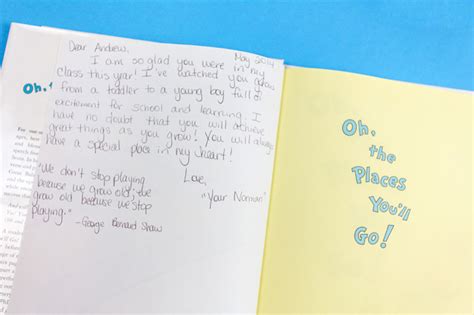 May 2014
Dear Andrew,
I am so glad you were in my
class this year! I've watched you grow
from a toddler to a young boy full of
excitement for school and learning. I
have no doubt that you will achieve
great things as you grow! You will always
have a special place in my heart!
Love,
"Your Norman"
"We don't stop playing
because we grow old; we
grow old because we stop
playing."
-George Bernard Shaw
Oh,
Oh,
the
Places
You'll
Go!